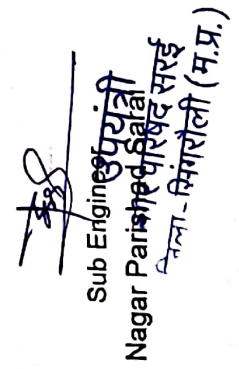 Sub Engineer
उपयंत्री
Nagar Parishad Sarai
नगर परिषद सरई
जिला-सिंगरौली (म.प्र.)